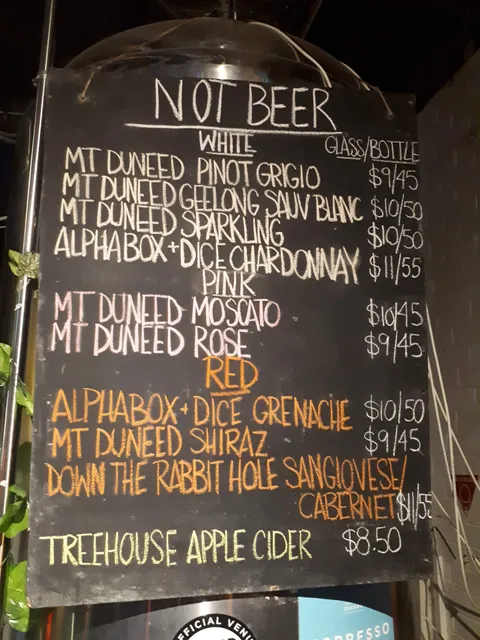 NOT BEER
WHITE GLASS/BOTTLE
MT DUNEED PINOT GRIGIO $9/45
MT DUNEED GEELONG SAUV BLANC $10/50
MT DUNEED SPARKLING $10/50
ALPHABOX+DICE CHARDONNAY $11/55
PINK
MT DUNEED MOSCATO $10/45
MT DUNEED ROSE $9/45
RED
ALPHABOX+DICE GRENACHE $10/50
MT DUNEED SHIRAZ $9/45
DOWN THE RABBIT HOLE SANGIOVESE/
CABERNET $11/55
TREEHOUSE APPLE CIDER $8.50
OFFICIAL